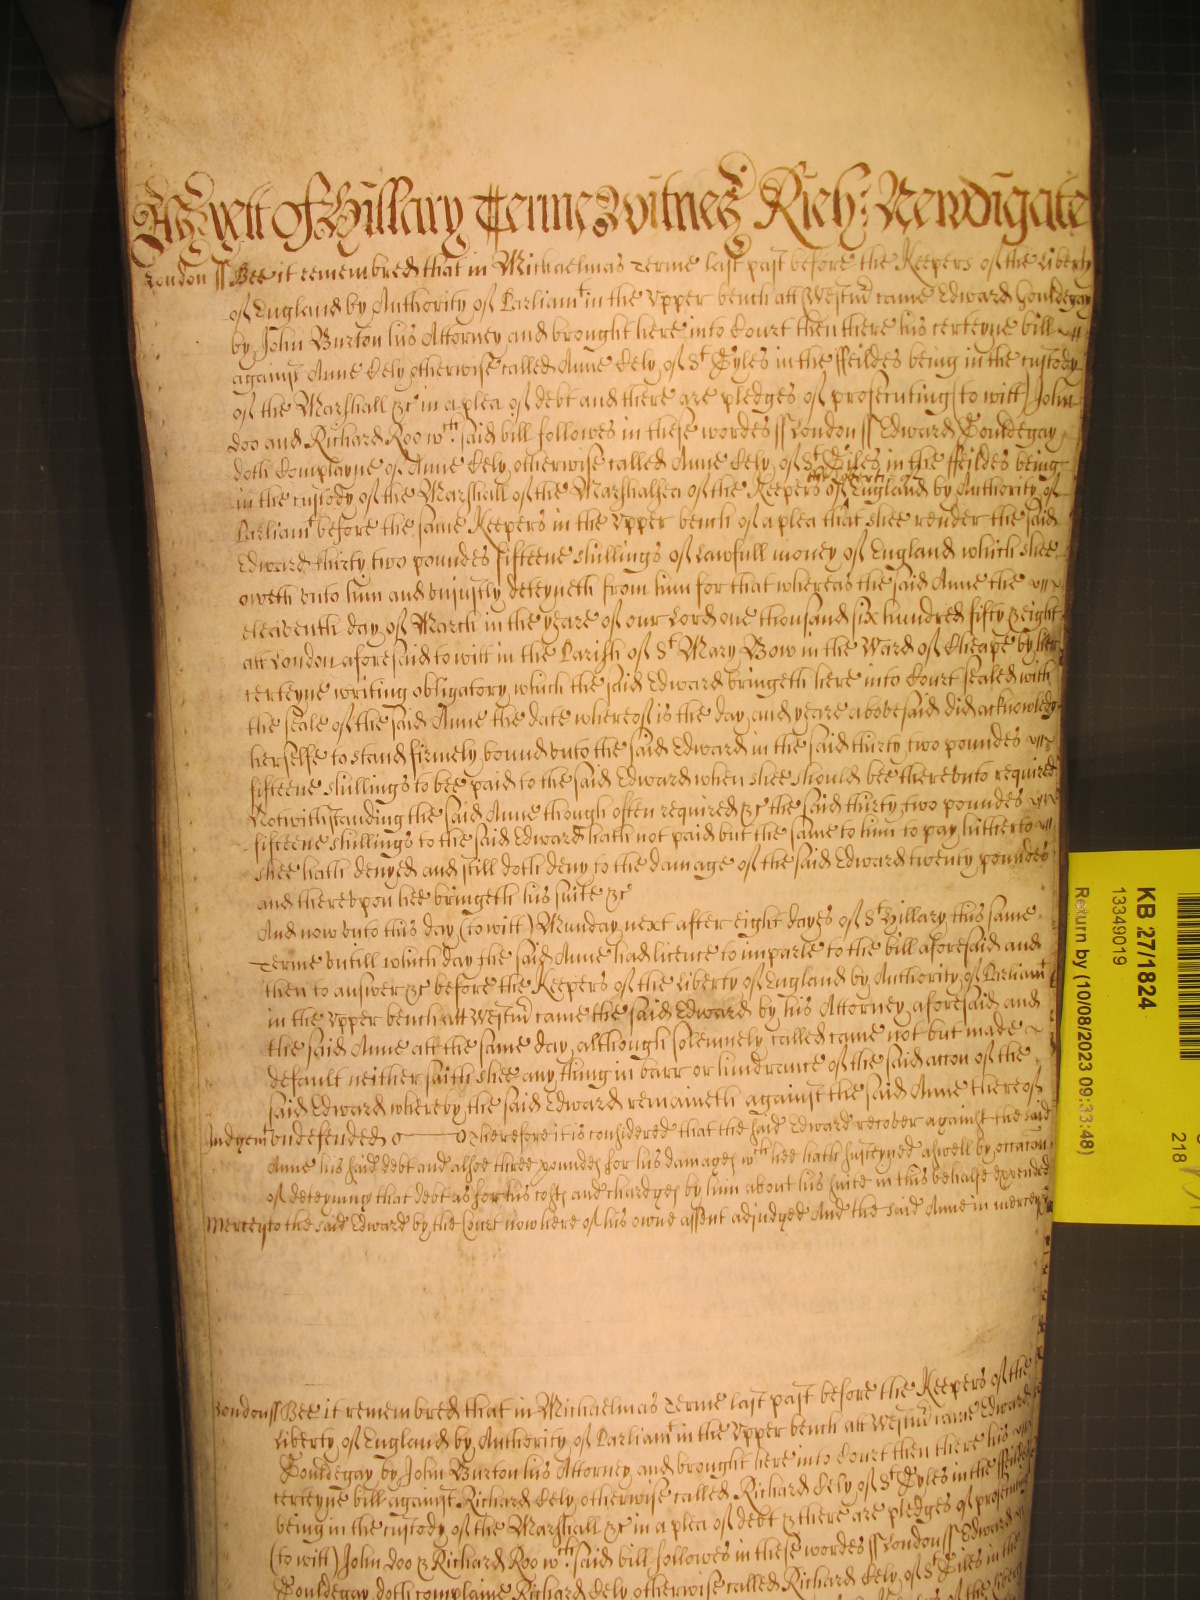 As yett of Hillary Terme Witnes Rich: Newdigate
London ss Bee it remembred that in Michaelmas Terme last past before the Keepers of the Liberty
of England by Authority of Parliamt in the Upper bench att Westm̃ came Edward Gouldegay
by John Burton his Attorney and brought here into Court then there his certeyne bill
against Anne Lely otherwise called Anne Lely of St Gyles in the ffeildes being in the custody
of the Marshall &c in a plea of debt and there are pledges of prosecuting (to witt) John
Doo and Richard Roo wch said bill followes in these wordes ss London ss Edward Gouldegay
doth Complayne of Anne Lely otherwise called Anne Lely of St Giles in the ffeildes being
in the custody of the Marshall of the Marshalsea of the Keepers of the Liberty of England by Authority of
Parliamt before the same Keepers in the Upper bench of a plea that shee render the said
Edward thirty two poundes fifteene shillings of Lawfull money of England which shee
oweth unto him and unjustly deteyneth from him for that whereas the said Anne the
eleaventh day of March in the yeare of our Lord one thousand six hundred fifty & eight
att London aforesaid to witt in the Parish of St Mary Bow in the Ward of Cheape by her
certeyne writing obligatory which the said Edward bringeth here into Court sealed with
the seale of the said Anne the date whereof is the day and yeare abovesaid did acknowledg
herselfe to stand firmely bound unto the said Edward in the said thirty two poundes
fifteene shillings to bee paid to the said Edward when shee should bee thereunto required
Notwithstanding the said Anne though often required &c the said thirty two poundes
fifteene shillings to the said Edward hath not paid but the same to him to pay hitherto
shee hath denyed and still doth deny to the damage of the said Edward twenty poundes
and thereupon hee bringeth his suite &c
And now unto this day (to witt) Munday next after eight dayes of St Hillary this same
Terme untill which day the said Anne had licence to imparle to the bill aforesaid and
then to answer &c before the Keepers of the Liberty of England by Authority of Parliamt
in the Upper bench att Westm̃ came the said Edward by his Attorney aforesaid and
the said Anne att the same day although solemnely called came not but made
default neither saith shee any thing in barr or hindrance of the said accon of the
said Edward whereby the said Edward remaineth against the said Anne thereof
Judgemt undefended Therefore it is considered that the said Edward recover against the said
Anne his said debt and alsoe three poundes for his damages wch hee hath susteyned aswell by occacon
of deteyning that debt as for his costs and chardges by him about his suite in this behalfe expended
Mercey to the said Edward by the Court now here of his owne assent adjudged And the said Anne in mercy
London ss Bee it remembred that in Michaelmas Terme last past before the Keepers of the
Liberty of England by Authority of Parliamt in the Upper bench att Westm̃ came Edward
Gouldegay by John Burton his Attorney and brought here into Court then there his
certeyne bill against Richard Lely otherwise called Richard Lely of St Gyles in the ffeildes
being in the custody of the Marshall &c in a plea of debt & there are pledges of prosecuting
(to witt) John Doo & Richard Roo wch said bill followes in these wordes ss London ss Edward
Gouldegay doth complaine Richard Lely otherwise called Richard Lely of St Giles in the
KB 27/1824
13349019
Return by (10/08/2023 09:33:48)
218